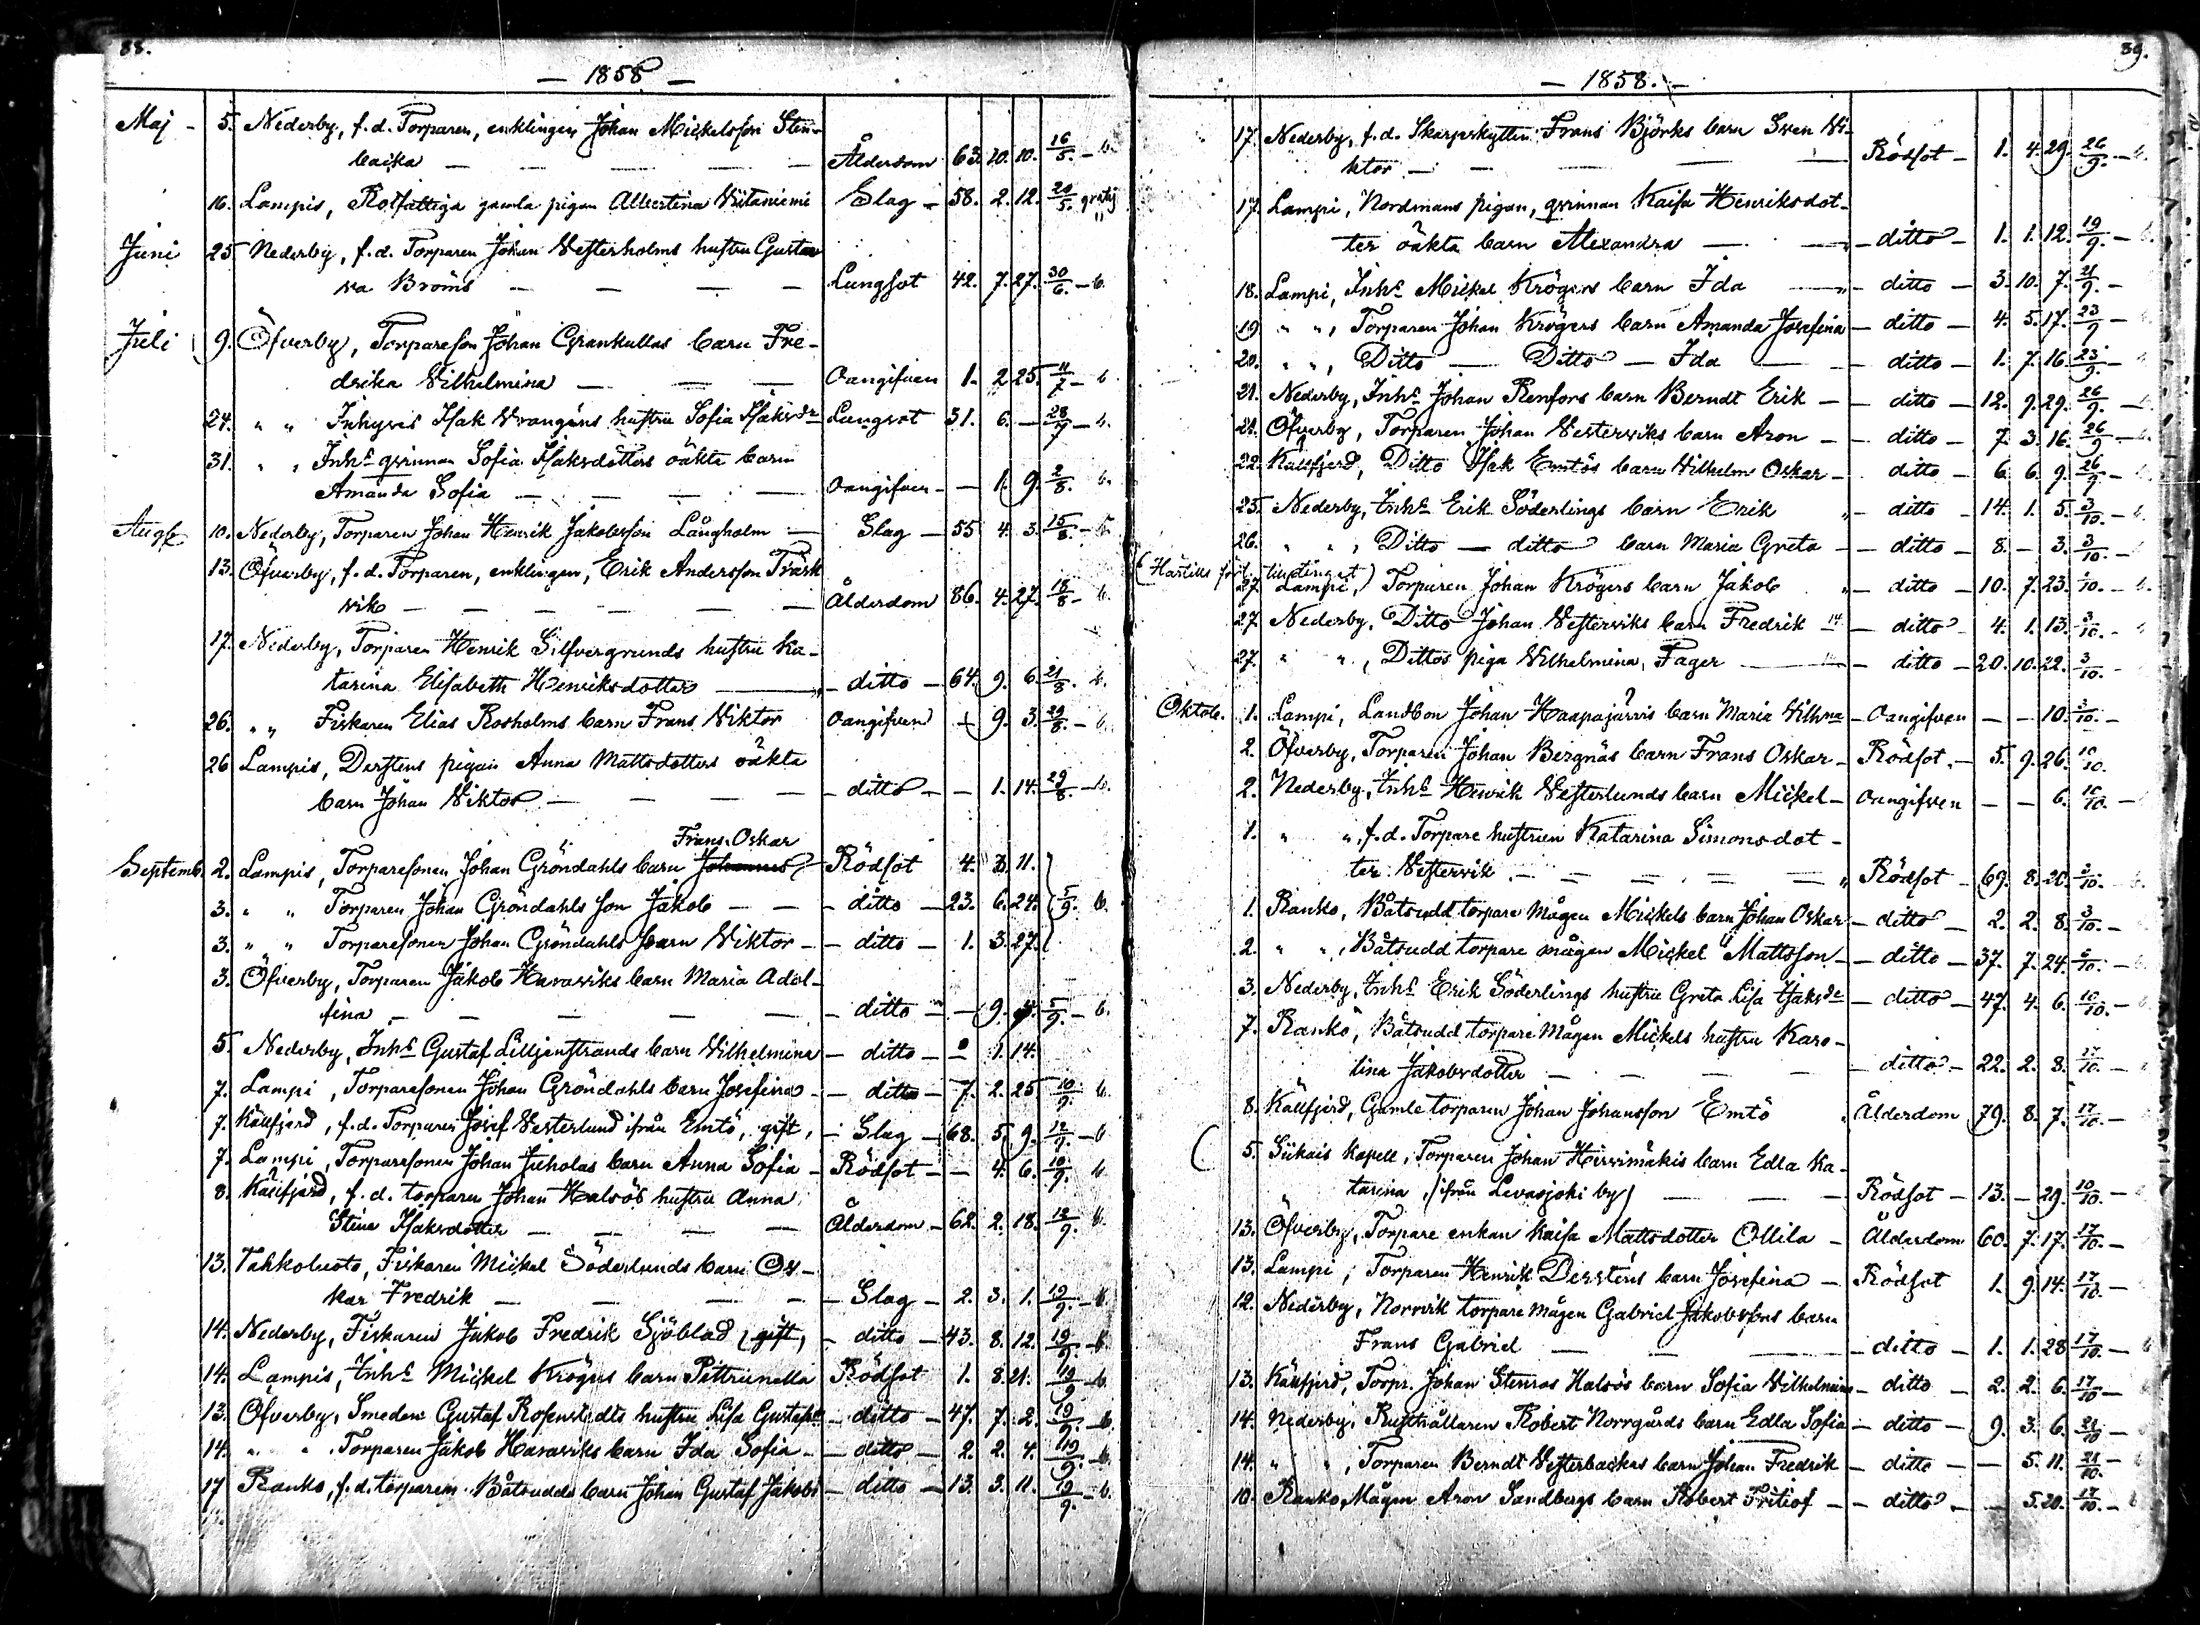 88.
— 1858 —
Maj - 5. Nederby, f.d. Torparen, enklingen Johan Mickelsson Sten-
backa — — — Ålderdom 63. 10. 10. 16/5. - b.
16. Lampis, Rotfattiga gamla pigan Albertina Viitaniemi Slag - 58. 2. 12. 20/5. gratis
Juni 25 Nederby, f.d. Torparen Johan Vesterholms hustru Gusta-
va Broms — — — Lungsot 42. 7. 27. 30/6. - b.
Juli 9. Öfverby, Torpareson Johan Grankullas barn Fre-
drika Vilhelmina — — — Oangifven 1. 2 25. 11/7 - b.
24. " " Inhyses Isak Vrangéns hustru Sofia Isaksdr Lungsot 31. 6. — 28/7 - b.
31. " " Inhs qvinnan Sofia Isaksdotters oäkta barn
Amanda Sofia — — — Oangifven - — 1. 9. 2/8. b.
Aug. 10. Nederby, Torparen Johan Henrik Jakobsson Långholm — Slag - 55 4. 3. 15/8. - b.
13. Öfverby, f.d. Torparen, enklingen, Erik Andersson Träsk
vik — — — — — Ålderdom 86. 4. 27. 18/8 - b.
17. Nederby, Torparen Henrik Silfvergrunds hustru Ka-
tarina Elisabeth Henriksdotter — - ditto - 64. 9. 6. 21/8. b.
26. " " Fiskaren Elias Rosholms barn Frans Viktor Oangifven — 9. 3. 29/8. - b.
26 Lampis, Derstens pigan Anna Mattsdotters oäkta
barn Johan Viktor — — — — - ditto - — 1. 14. 29/8. - b.
Frans Oskar
Septemb. 2. Lampis, Torparesonen Johan Gröndahls barn Johannes Rödsot 4. 3. 11.
3. " " Torparen Johan Gröndahls son Jakob — — - ditto - 23. 6. 24. 5/9. b.
3. " " Torparesonen Johan Gröndahls barn Viktor - - ditto - 1. 3. 27.
3. Öfverby, Torparen Jakob Haravviks barn Maria Adol-
fina — — — — - ditto - — 9. 4. 5/9. - b.
5. Nederby, Inhs Gustaf Liljenstrands barn Vilhelmina - ditto - — 1. 14.
7. Lampi, Torparesonen Johan Gröndahls barn Josefina - - ditto - 7. 2. 25 10/9. b.
7. Källfjerd, f.d. Torparen Josef Vesterlund ifrån Emtö, gift, - Slag - 68. 5. 9. 12/9. - b
7. Lampi, Torparesonen Johan Juholas barn Anna Sofia - Rödsot - — 4. 6. 10/9. b
8. Källfjerd, f.d. torparen Johan Halsös hustru Anna
Stina Isaksdotter — — — Ålderdom - 62. 2. 18. 12/9. b.
13. Tahkoluoto, Fiskaren Mickel Söderlunds barn Os-
kar Fredrik — — — - Slag - 2. 3. 1. 19/9. - b.
14. Nederby, Fiskaren Jakob Fredrik Sjöblad (gift) - ditto - 43. 8. 12. 19/9. - b.
14. Lampis, Inhs Mickel Krögers barn Pettrunella Rödsot 1. 8. 21. 19/9 - b.
13. Öfverby, Smeden Gustaf Rosenstedts hustru Lisa Gustafsdr - ditto - 47. 7. 2. 19/9. - b.
14. " " Torparen Jakob Haravviks barn Ida Sofia - - ditto - 2. 2. 4. 19/9. - b.
17 Ranko, f.d. torparen Båtsudds barn Johan Gustaf Jakobs - ditto - 13. 3. 11. 19/9. - b.
89.
— 1858. —
17. Nederby, f.d. Skarpskytten Frans Björks barn Sven Vi-
ktor — — — Rödsot - 1. 4. 29. 26/9. -
17. Lampi, Nordmans pigan, qvinnan Kaisa Henriksdot-
ter oäkta barn Alexandra — — - ditto - 1. 1. 12. 19/9. -
18. Lampi, Inhs Mickel Krögers barn Ida — - ditto - 3. 10. 7. 21/9. -
19 " ", Torparen Johan Krögers barn Amanda Josefina - ditto - 4. 5. 17. 23/9 -
20. " ", Ditto — Ditto — Ida — - ditto - 1. 7. 16. 23/9. -
21. Nederby, Inhs Johan Renfors barn Berndt Erik - - ditto - 12. 9. 29. 26/9. -
21. Öfverby, Torparen Johan Vesterviks barn Aron - - ditto - 7. 3. 16. 26/9 -
22. Källfjerd, Ditto Isak Emtös barn Vilhelm Oskar - - ditto - 6. 6. 9. 26/9 -
25. Nederby, Inhs Erik Söderlings barn Erik - ditto - 14. 1. 5. 3/10. -
26. " ", Ditto — ditto barn Maria Greta - - ditto - 8. - 3. 3/10. -
(Härtills tinget)
27. Lampi, Torparen Johan Krögers barn Jakob - ditto - 10. 7. 23. /10. - b.
27. Nederby, Ditto Johan Vesterviks barn Fredrik - ditto - 4. 1. 13. 3/10. -
27. " ", Dittos piga Vilhelmina Fager — - ditto - 20. 10. 22. 3/10. -
Oktob. 1. Lampi, Landbon Johan Haapajärvis barn Maria Vilhna - Oangifven — — 10. 3/10. -
2. Öfverby, Torparen Johan Bergnäs barn Frans Oskar - Rödsot. - 5. 9. 26. 10/10.
2. Nederby, Inhs Henrik Vesterlunds barn Mickel - Oangifven — — 6. 10/10. -
1. " " f.d. Torpare hustrun Katarina Simonsdot-
ter Vestervik — — — — Rödsot - 69. 8. 20. 3/10. -
1. Ranko, Båtsudd torpare Mågen Mickels barn Johan Oskar - ditto - 2. 2. 8. 3/10. -
2. " ", Båtsudd torpare mågen Mickel Mattsson - - ditto - 37. 7. 24. 6/10. -
3. Nederby, Inhs Erik Söderlings hustru Greta Lisa Isaksdr - ditto - 47. 4. 6. 10/10. -
7. Rankö, Båtsudd torpare Mågen Mickels hustru Karo-
lina Jakobsdotter — — — - ditto - 22. 2. 8. 17/10. -
8. Källfjerd, Gamle torparen Johan Johansson Emtö Ålderdom 79. 8. 7. 17/10. -
( 5. Siikais Kapell, Torparen Johan Hirvimäkis barn Edla Ka-
tarina, (ifrån Levasjoki by) — — Rödsot - 13. - 29. 10/10. -
13. Öfverby, Torpare enkan Kaisa Mattsdotter Ollila - Ålderdom 60. 7. 17. 17/10. -
13. Lampi, Torparen Henrik Derstens barn Josefina - Rödsot 1. 9. 14. 17/10. -
12. Nederby, Norrvik torpare mågen Gabriel Jakobssons barn
Frans Gabriel — — - ditto - 1. 1. 28 17/10. -
13. Källfjerd, Torpr. Johan Stenros Halsös barn Sofia Vilhelmina - ditto - 2. 2. 6. 17/10 -
14. Nederby, Rusthållaren Robert Norrgårds barn Edla Sofia - ditto - 9. 3. 6. 21/10 -
14. " ", Torparen Berndt Vesterbackas barn Johan Fredrik - ditto - — 5. 11. 21/10. -
10. Ranko, Mågen Aron Sandbergs barn Robert Fritiof - - ditto - — 5. 20. 17/10. -